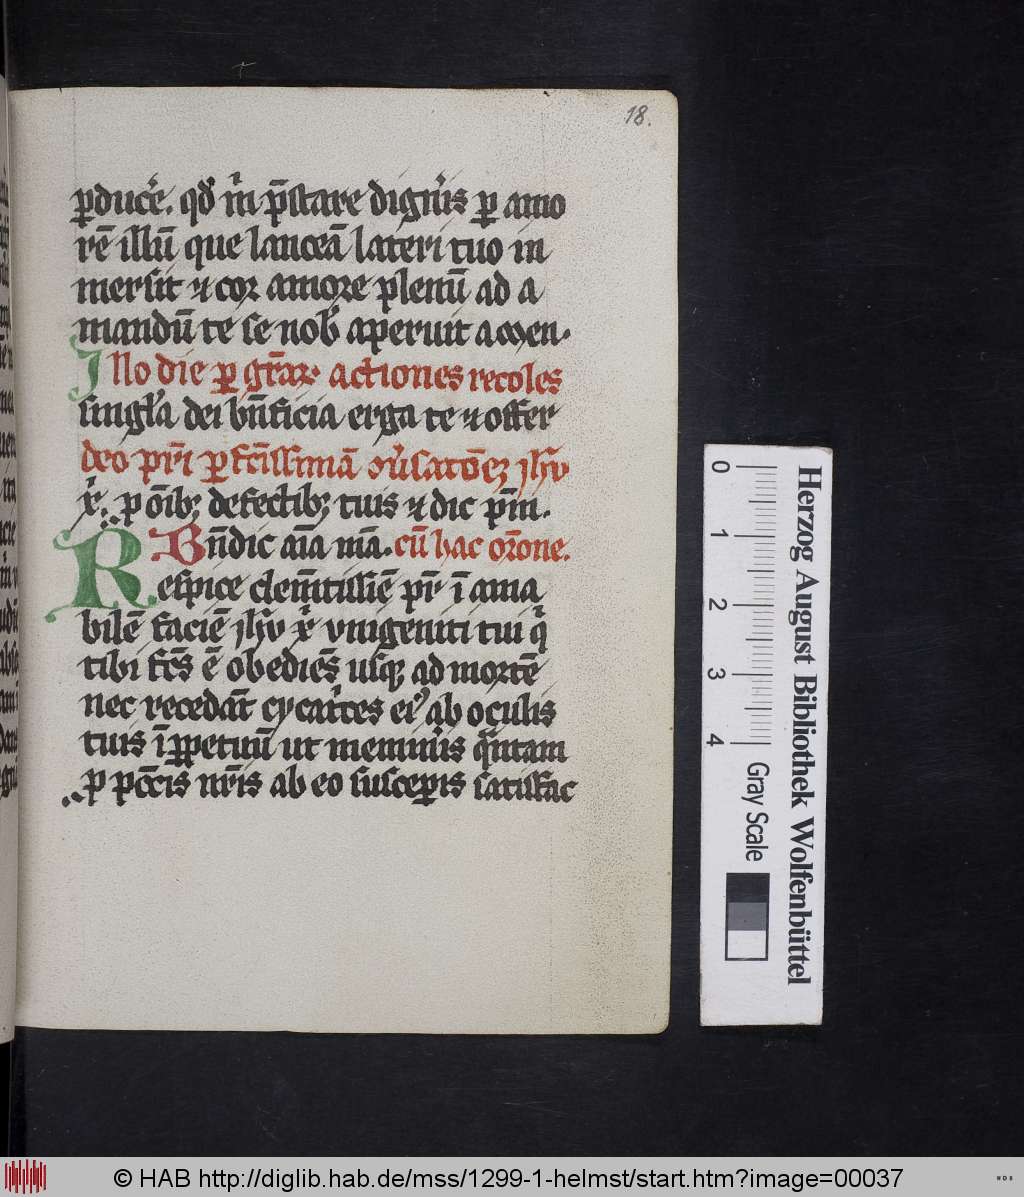 18.
ꝑducͤe. qđ m̄ p̄stare digͥis ꝑ amo
rē illū que lanceā lateri tuo in
mersit ⁊ cor amore plenū ad a
mandū te se nob̕ aperuit amen.
Illo die ꝑ gr̄aꝝ actiones recoles
singl̕a dei bn̄ficia erga te ⁊ offer
deo pr̄i ꝑfc̄issimā jhū
xp̄. p om̄ib; defectib; tuis ⁊ dic p̄m.
Bn̄dic aīa m̄a. cū hac or̄one.
Respice clem̄tissīe pr̄ ī ama
bilē faciē jhū xp̄ vnigeniti tui q̄
tibi fc̄s ē obediēs usq; ad mortē
nec recedāt cycat̕ces eiꝰ ab oculis
tuis īꝑpetuū ut memīis q̄ntam
p pcc̄is nr̄is ab eo susceꝑis satisfac
Herzog August Bibliothek Wolfenbüttel
0 1 2 3 4
Gray Scale
© HAB http://diglib.hab.de/mss/1299-1-helmst/start.htm?image=00037